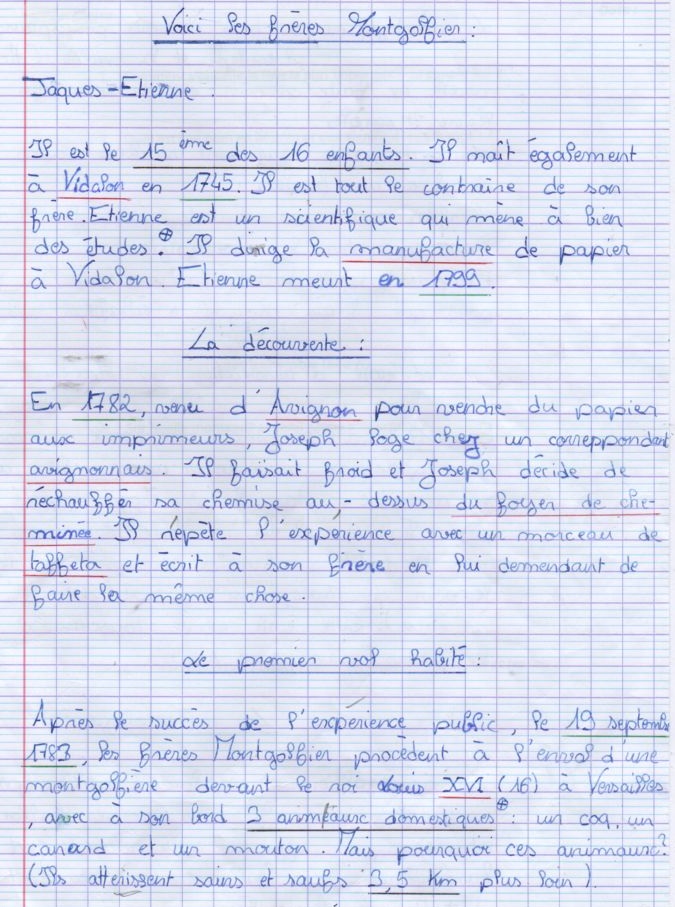 Voici les frères Montgolfier :
Jaques-Etienne.
Il est le 15 ème des 16 enfants. Il naît également
à Vidalon en 1745. Il est tout le contraire de son
frère. Etienne est un scientifique qui mène à bien
des études. Il dirige la manufacture de papier
à Vidalon. Etienne meurt en 1799.
La découverte :
En 1782, venu d'Avignon pour vendre du papier
aux imprimeurs, Joseph loge chez un correppondant
avignonnais. Il faisait froid et Joseph décide de
réchauffer sa chemise au,-dessus du foyer de che-
minée. Il répète l'expérience avec un morceau de
taffeta et écrit à son frère en lui demendant de
faire la même chose.
Le premier vol habité :
Après le succès de l'experience public, le 19 septembre
1783, les frères Montgolfier procèdent à l'envol d'une
montgolfière devant le roi Louis XVI (16) à Versailles
, avec à son bord 3 animaux domestiques : un coq, un
canard et un mouton. Mais pourquoi ces animaux?
(Ils atterissent sains et saufs 3,5 Km plus loin).